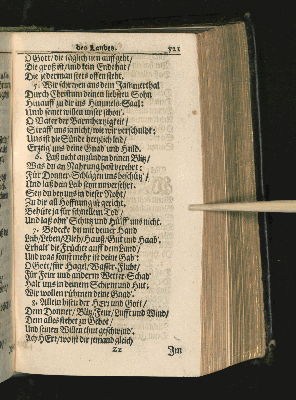 des Landes. 521
O Gott / die täglich neu auff geht /
Die groß ist / und kein Ende hat /
Die jederman stets offen steht.
5. Wir schreyen aus dem Jammerthal
Durch Christum deinen liebsten Sohn
Hinauff zu dir ins Himmels-Saal:
Umb seinet willen unser schon.
O Vater der Barmhertzigkeit /
Straff uns ja nicht / wie wir verschuldt:
Uns ist die Sünde hertzlich leid /
Erzeig uns deine Gnad und Huld.
6. Laß nicht anzünden deinen Blitz /
Was du an Nahrung hast verehrt:
Für Donner-Schlägn uns beschütz /
Und laß dein Leib seyn unversehrt.
Sey du bey uns in dieser Noht /
Zu dir all Hoffnung ist gericht.
Behüte ja für schnellem Tod /
Und laß ohn Schutz und Hülff uns nicht.
7. Bedecke du mit deiner Hand
Leib / Leben / Vieh / Hauß / Gut und Haab.
Erhalt die Früchte auf dem Land /
Und was sonst mehr ist deine Gab:
O Gott / für Hagel / Wasser-Fluht /
Für Feur und anderm Wetter-Schad
Halt uns in deinem Schirm und Hut;
Wir wollen rühmen deine Gnad.
8. Allein bistu der Herr und Gott /
Dem Donner / Blitz / Feur / Lufft und Wind /
Dem alles stehet zu Gebot /
Und seinen Willen thut geschwind.
Ach HErr / wo ist dir jemand gleich
Zz Im